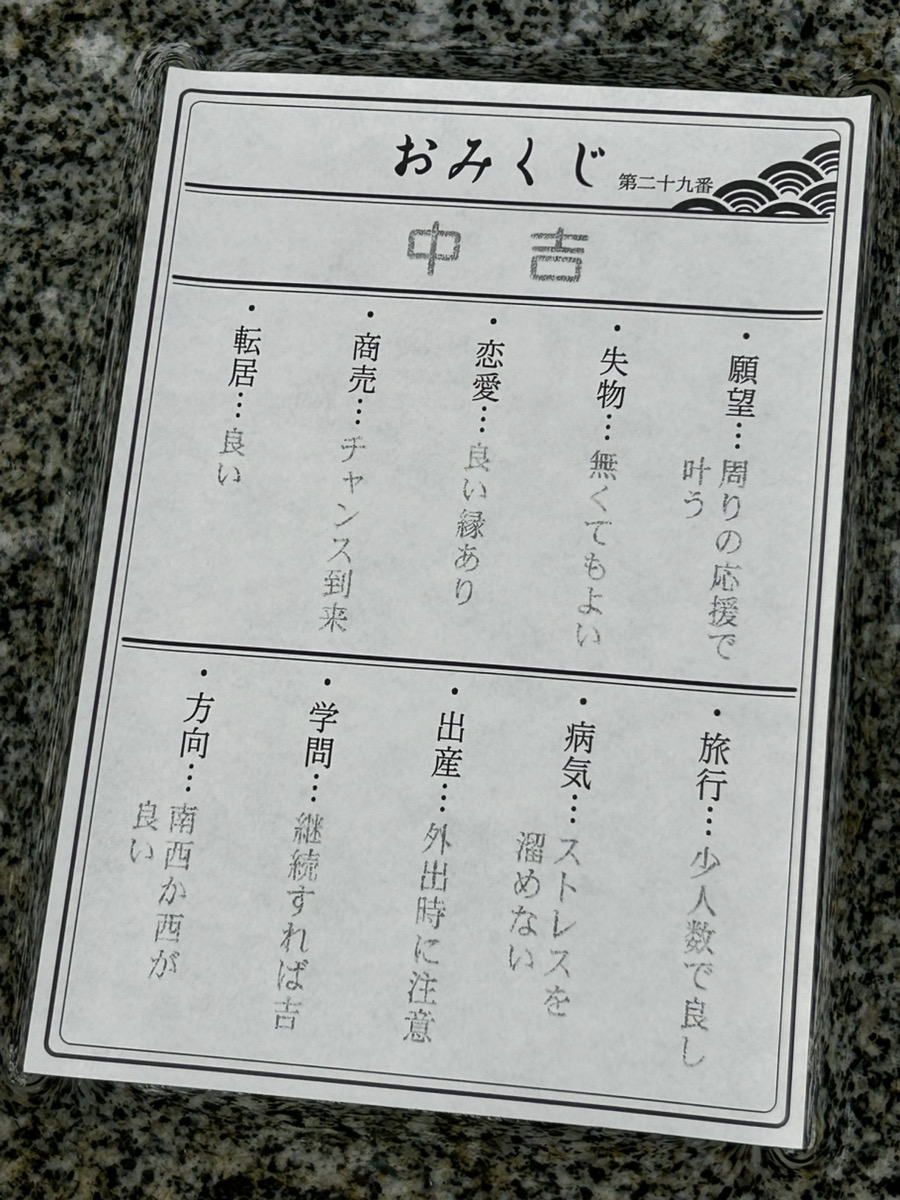 おみくじ
第二十九番
中吉
・願望…周りの応援で
叶う
・失物…無くてもよい
・恋愛…良い縁あり
・商売…チャンス到来
・転居…良い
・旅行…少人数で良し
・病気…ストレスを
溜めない
・出産…外出時に注意
・学問…継続すれば吉
・方向…南西か西が
良い